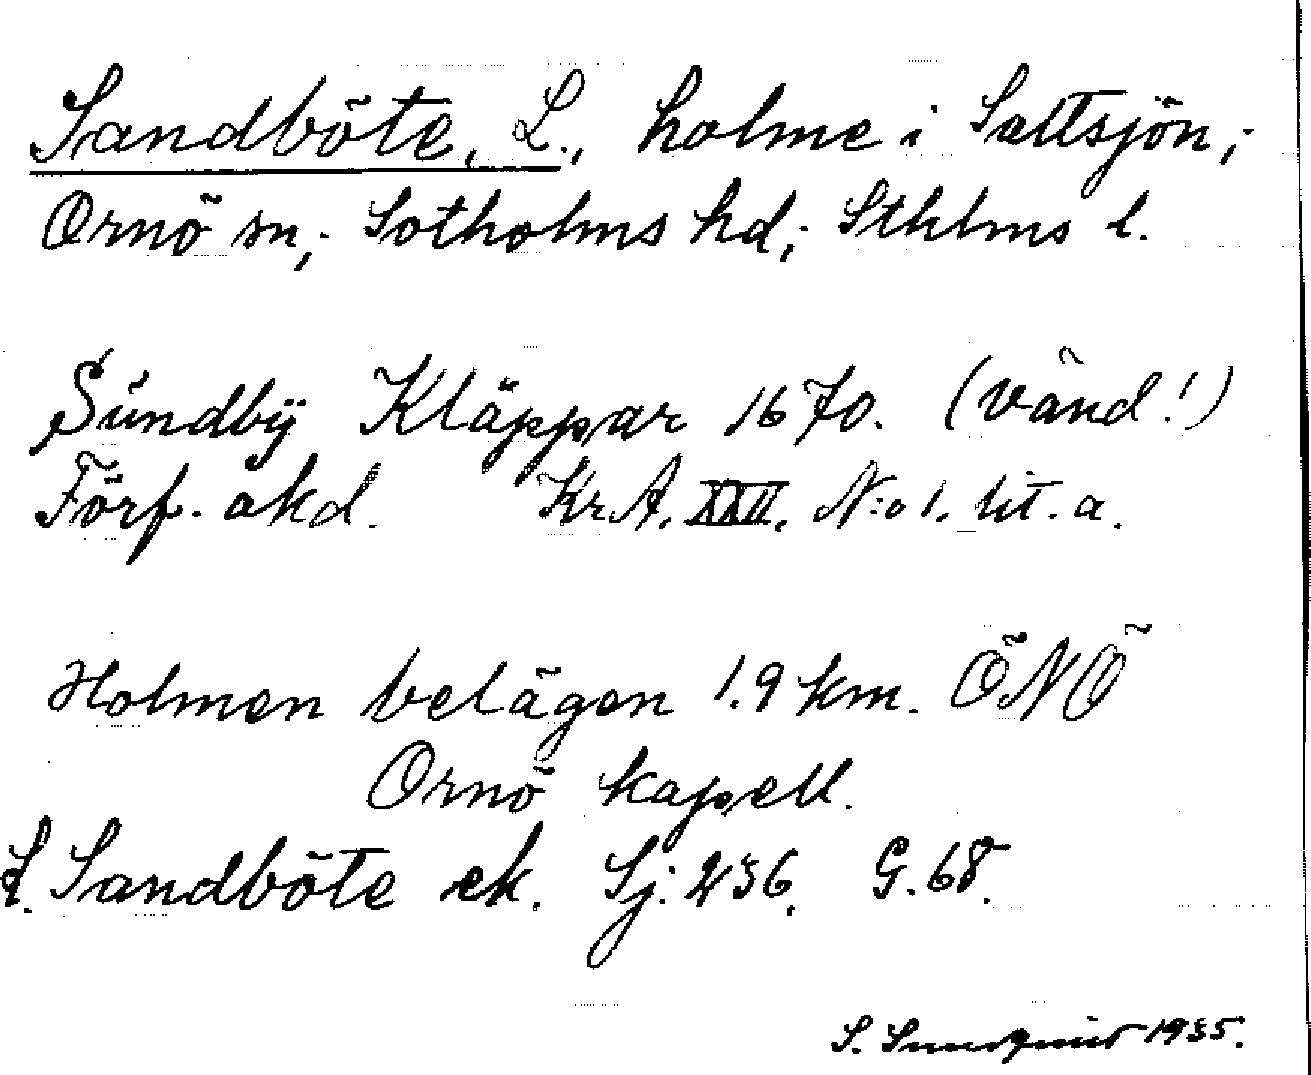 Sandböte, L., holme i Saltsjön,;
Ornö sn,; Sotholms hd,; Sthlms l.
Sundbÿ Kläppar 1670. (vänd!)
Förf. akd. KrA. XXII. N:o 1. lit. a.
Holmen belägen 1.9 km. ÖNÖ
Ornö kapell.
L. Sandböte ek. Sj. 236. G. 68.
S. Sundquist 1935.